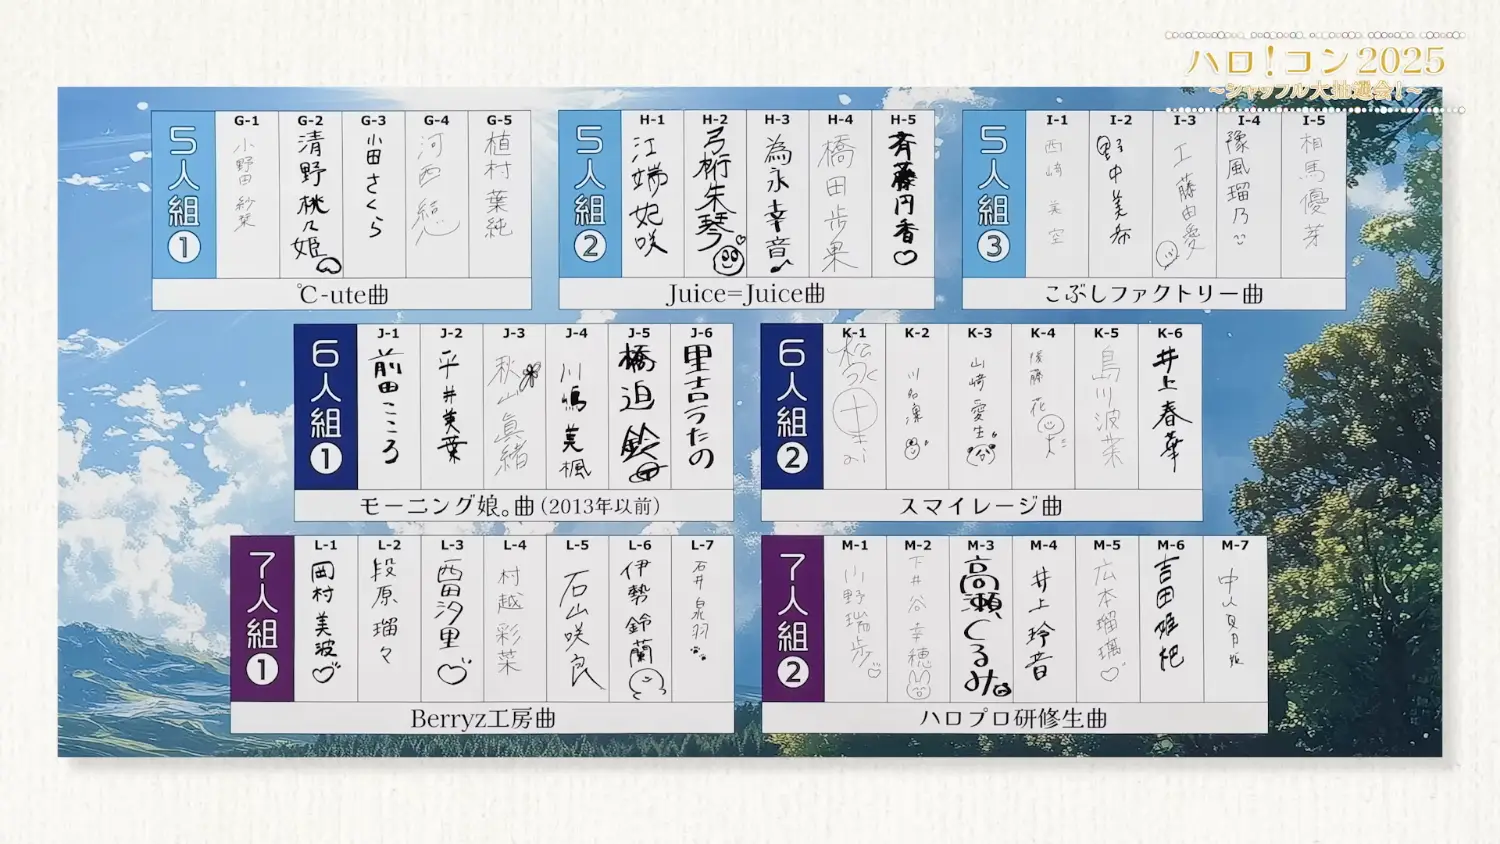 ハロ!コン2025
~シャッフル大抽選会!~
5人組1
G-1 G-2 G-3 G-4 G-5
小野田紗栞
清野桃々姫
小田さくら
河西結心
植村葉純
℃-ute曲
5人組2
H-1 H-2 H-3 H-4 H-5
江端妃咲
弓桁朱琴
為永幸音
橋田歩果
斉藤円香
Juice=Juice曲
5人組3
I-1 I-2 I-3 I-4 I-5
西﨑美空
野中美希
工藤由愛
豫風瑠乃
相馬優芽
こぶしファクトリー曲
6人組1
J-1 J-2 J-3 J-4 J-5 J-6
前田こころ
平井美葉
秋山眞緒
川嶋美楓
橋迫鈴
里吉うたの
モーニング娘。曲(2013年以前)
6人組2
K-1 K-2 K-3 K-4 K-5 K-6
川名凜
山﨑愛生
後藤花
島川波菜
井上春華
スマイレージ曲
7人組1
L-1 L-2 L-3 L-4 L-5 L-6 L-7
岡村美波
段原瑠々
西田汐里
村越彩菜
石山咲良
伊勢鈴蘭
石井泉羽
Berryz工房曲
7人組2
M-1 M-2 M-3 M-4 M-5 M-6 M-7
小野瑞歩
下井谷幸穂
高瀬くるみ
井上玲音
広本瑠璃
吉田姫杷
中山夏月姫
ハロプロ研修生曲